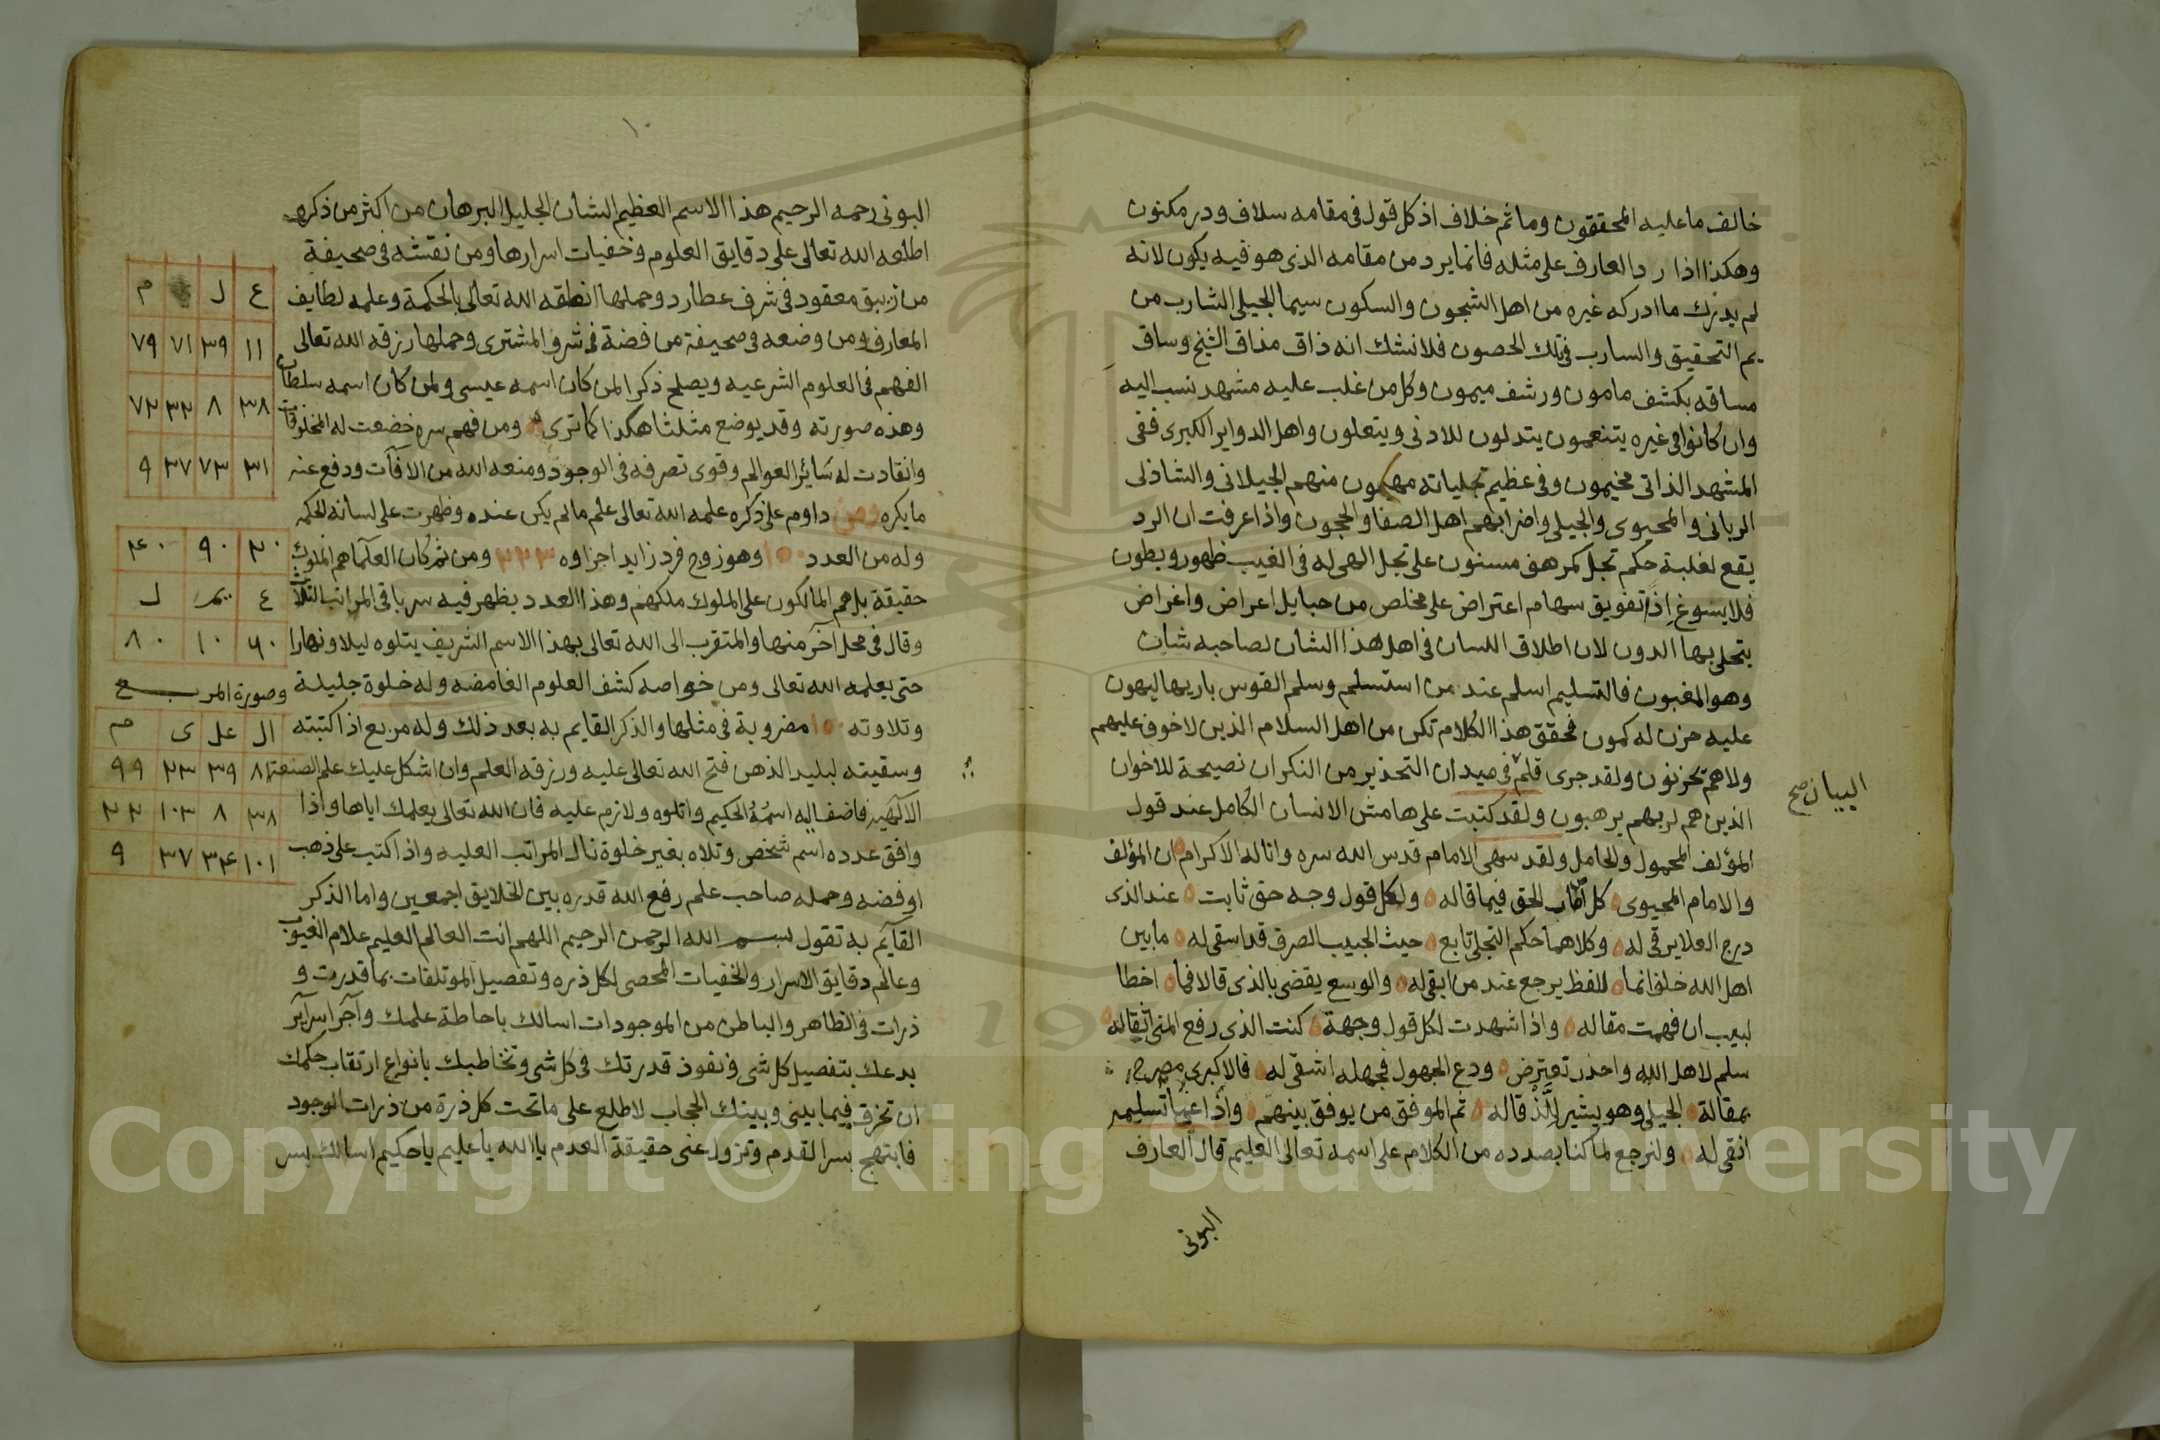 خالف ما عليه المحققون وما ثم خلاف اذ كل قول فى مقامه سلاف ودر مكنون
وهكذا اذا رد العارف على مثله فانما يرد من مقامه الذى هو فيه يكون لانه
لم يدرك ما ادركه غيره من اهل الشجون والسكون سيما الجيلى الشارب من
يم التحقيق والسارب فى تلك الحصون فلا نشك انه ذاق مذاق الشيخ وساق
مساقه بكشف مامون ورشف ميمون وكل من غلب عليه مشهد نسب اليه
وان كانوا فى غيره يتنعمون يتدلون للادنى ويتعلون واهل الدواير الكبرى ففى
المشهد الذاتى مخيمون وفى عظيم تجلياته مهيمون منهم الجيلانى والشاذلى
الربانى والمحيوى والجيلى واضرابهم اهل الصفا والحجون واذا عرفت ان الرد
يقع لغلبة حكم تجل كمرهف مسنون على تجل الهى له فى الغيب ظهور وبطون
فلا يسوغ اذا تفويق سهام اعتراض على مخلص من حبايل اعراض واغراض
يتحلى بها الدون لان اطلاق اللسان فى اهل هذا الشان لصاحبه شان
وهو المغبون فالتسليم اسلم عند من استسلم وسلم القوس باريها ليهون
عليه حزن له كمون فحقق هذا الكلام تكن من اهل السلام الذين لا خوف عليهم
ولا هم يحزنون ولقد جرى قلم فى ميدان التحذير من النكران نصيحة للاخوان
البيان صح
الذين هم لربهم يرهبون ولقد كتبت على هامش الانسان الكامل عند قول
المؤلف المحمول والحامل ولقد سهى الامام قدس الله سره واناله الاكرام ان المؤلف
والامام المحيوى كل اصاب الحق فيما قاله ولكل قول وجه حق ثابت عند الذى
درج العلا يرقى له وكلاهما حكم التجلى تابع حيث الحبيب الصرف قد اسقى له ما بين
اهل الله خلف انما للفظ يرجع عند من ابقى له والوسع يقضى بالذى قالا فما اخطا
لبيب ان فهمت مقاله واذا شهدت لكل قول وجهة كنت الذى رفع المنى اثقاله
سلم لاهل الله واحذر تعترض ودع الجهول فجهله اشقى له فالاكبرى مصرح
بمقالة الجيلى وهو يشير للذ قاله ثم الموفق من يوفق بينهم واذا عمى تسليم
انقى له ولنرجع لما كنا بصدده من الكلام على اسمه تعالى العليم قال العارف
البونى
١٠
البونى رحمه الرحيم هذا الاسم العظيم الشان الجليل البرهان من اكثر من ذكره
اطلعه الله تعالى على دقايق العلوم وخفيات اسرارها ومن نقشه فى صحيفة
من زيبق معقود فى شرف عطارد وحملها انطقه الله تعالى بالحكمة وعلمه لطايف
المعارف ومن وضعه فى صحيفة من فضة فى شرف المشترى وحملها رزقه الله تعالى
الفهم فى العلوم الشرعيه ويصلح ذكرا لمن كان اسمه عيسى ولمن كان اسمه سلطان
وهذه صورته وقد يوضع مثلثا هكذا كما ترى ومن فهم سره خضعت له المخلوقات
وانقادت له سائر العوالم وقوى تصرفه فى الوجود ومنعه الله من الآفات ودفع عنه
ما يكره ومن داوم على ذكره علمه الله تعالى علم مالم يكن عنده وظهرت على لسانه الحكمه
وله من العدد ١٥٠ وهو زوج فرد زايد اجزاوه ٢٢٢ ومن ثم كان العلما هم الملوك
حقيقة بل هم المالكون على الملوك ملكهم وهذا العدد يظهر فيه سر باقى المراتب الثلاث
وقال فى محل آخر منها والمتقرب الى الله تعالى بهذا الاسم الشريف يتلوه ليلا ونهارا
حتى يعلمه الله تعالى ومن خواصه كشف العلوم الغامضه وله خلوة جليلة
وتلاوته ١٥٠ مضروبة فى مثلها والذكر القايم به بعد ذلك وله مربع اذا كتبته
وسقيته لبليد الذهن فتح الله تعالى عليه ورزقه العلم وان اشكل عليك علم الصنعة
الآلهيه فاضف اليه اسمُهُ الحكيم واتلوه ولازم عليه فان الله تعالى يعلمك اياها واذا
وافق عدده اسم شخص وتلاه بعير خلوة نال المراتب العليه واذا كتب على ذهب
او فضه وحمله صاحب علم رفع الله قدره بين الخلايق اجمعين واما الذكر
القايم به تقول بسم الله الرحمن الرحيم اللهم انت العالم العليم علام الغيوب
وعالم دقايق الاسرار والخفيات المحصى لكل ذره وتفصيل الموتلفات بما قدرت و
ذرات فى الظاهر والباطن من الموجودات اسالك باحاطة علمك وآخر اسراير
بدعك بتفصيل كل شى ونفوذ قدرتك فى كل شى وتخاطبك بانواع ارتقاب حكمك
ان تخرق فيما بينى وبينك الحجاب لاطلع على ما تحت كل ذرة من ذرات الوجود
فابتهج بسر القدم وتزول عنى حقيقة العدم يا الله يا عليم يا حكيم اسالك بسر
ع ل م
١١ ٣٩ ٧١ ٧٩
٣٨ ٨ ٣٢ ٧٢
٣١ ٧٣ ٣٧ ٩
٢٠ ٩٠ ٤٠
ع يم ل
٦٠ ١٠ ٨٠
وصورة المربع
ال عل ى م
٨١ ٣٩ ٢٣ ٩٩
٣٨ ٨ ١٠٣ ٢٢
١٠١ ٣٤ ٣٧ ٩
Copyright © King Saud University